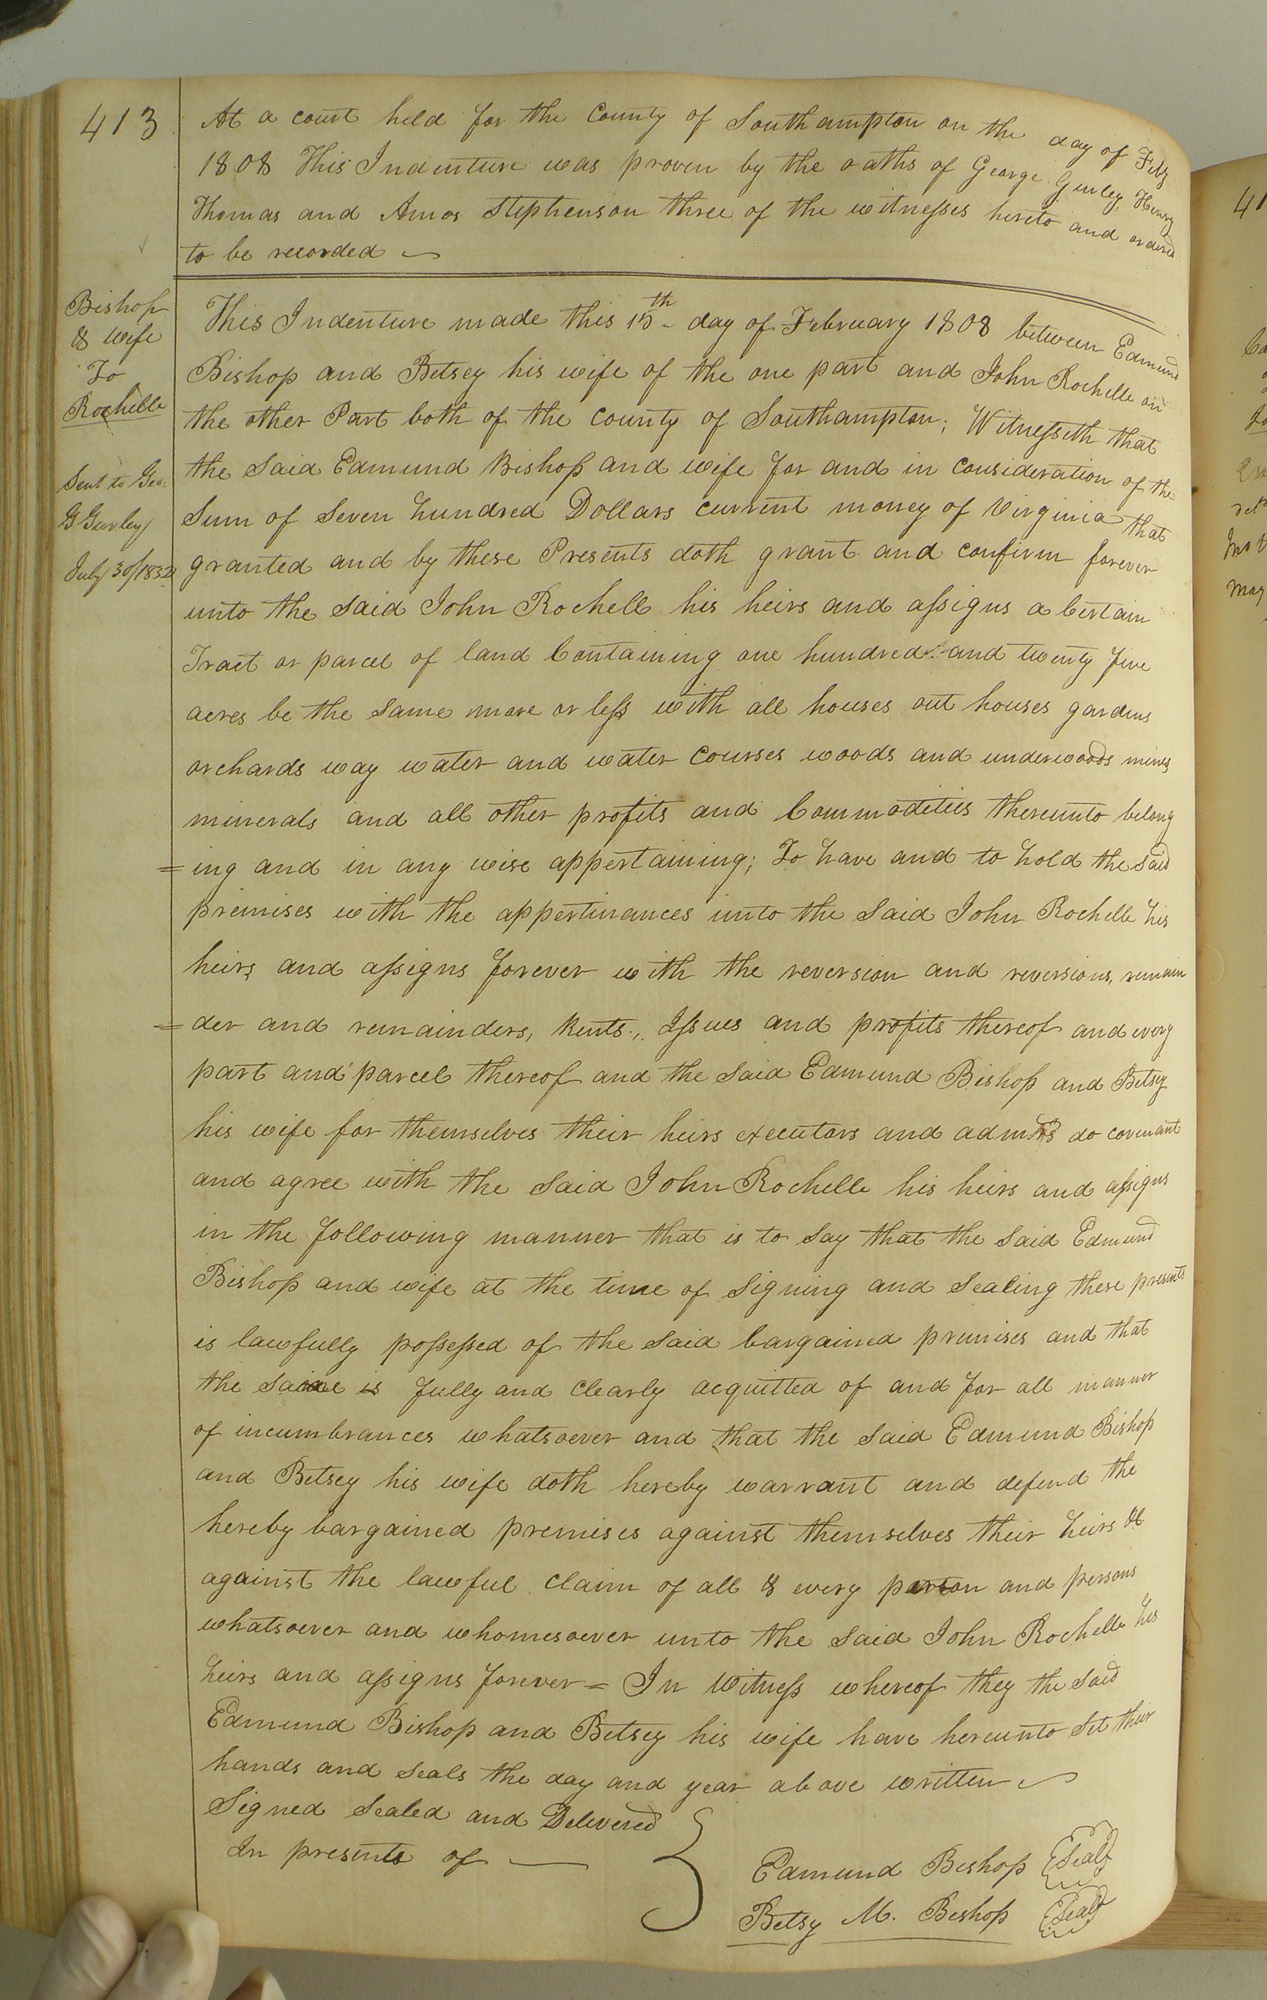 413
At a court held for the County of Southampton on the day of Feby
1808 This Indenture was proven by the oaths of George Gurley, Henry
Thomas and Amos Stephenson three of the witnesses hereto and ordered
to be recorded
Bishop
& wife
To
Rochelle
Sent to Geo.
G Gurley
July 30/1832
This Indenture made this 15th day of February 1808 between Edmund
Bishop and Betsey his wife of the one part and John Rochelle on
the other Part both of the county of Southampton; Witnesseth that
the Said Edmund Bishop and wife for and in consideration of the
Sum of Seven hundred Dollars current money of Virginia that
granted and by these Presents doth grant and confirm forever
unto the said John Rochell his heirs and assigns a Certain
Tract or parcel of land Containing one hundred and twenty five
acres be the same more or less with all houses out houses gardens
orchards way water and water courses woods and underwoods mines
minerals and all other profits and Commodities thereunto belong
=ing and in any wise appertaining; To have and to hold the said
premises with the appertinances unto the Said John Rochelle his
heirs and assigns forever with the reversion and reversions, remain
=der and remainders, Rents, Issues and profits thereof and every
part and parcel thereof and the said Edmund Bishop and Betsey
his wife for themselves their heirs executors and admrs do covenant
and agree with the Said John Rochelle his heirs and assigns
in the following manner that is to say that the said Edmund
Bishop and wife at the time of Signing and Sealing these presents
is lawfully possessed of the said bargained premises and that
the same is fully and clearly acquitted of and for all manner
of incumbrances whatsoever and that the said Edmund Bishop
and Betsey his wife doth hereby warrant and defend the
hereby bargained premises against themselves their heirs &
against the lawful claim of all & every person and persons
whatsoever and whomesoever unto the said John Rochelle his
heirs and assigns forever = In Witness whereof they the said
Edmund Bishop and Betsey his wife have hereunto Set their
hands and seals the day and year above written
Signed Sealed and Delivered
In presents of
Edmund Bishop Seal
Betsy M. Bishop Seal